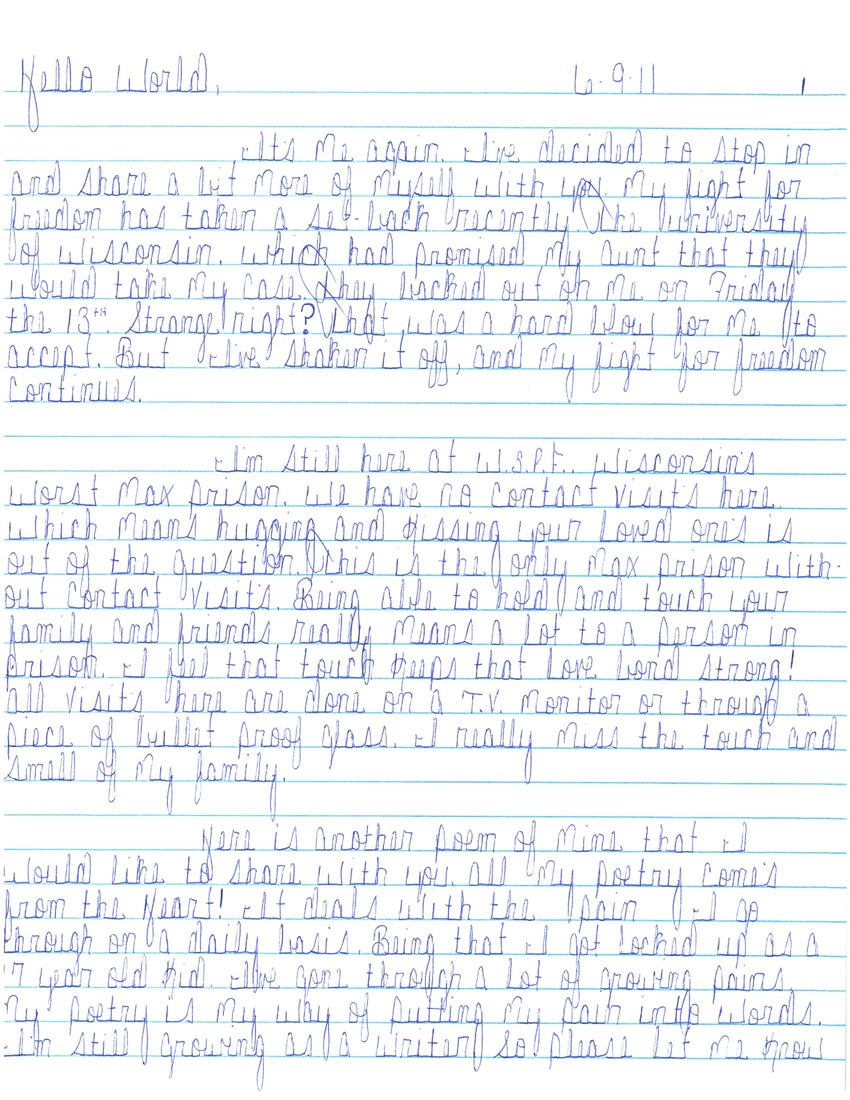 Hello World, 6.9.11 1
It's me again. I've decided to stop in
and share a bit more of myself with you. My fight for
freedom has taken a set-back recently. The University
of Wisconsin. Which had promised my aunt that they
would take my case. They backed out on me on Friday
the 13TH. Strange right? That was a hard blow for me to
accept. But I've shaken it off, and my fight for freedom
continues.
I'm still here at W.S.P.F., Wisconsin's
worst max prison. We have no contact visit's here.
Which means hugging and kissing your loved one's is
out of the question. This is the only max prison with-
out contact visit's. Being able to hold and touch your
family and friends really means a lot to a person in
prison. I feel that touch keeps that love bond strong!
All visits here are done on a T.V. monitor or through a
piece of bullet proof glass. I really miss the touch and
smell of my family.
Here is another poem of mine that I
would like to share with you. All my poetry come's
from the heart! It deals with the pain I go
through on a daily basis. Being that I got locked up as a
17 year old kid. I've gone through a lot of growing pains.
My poetry is my way of putting my pain into words.
I'm still growing as a writer so please let me know